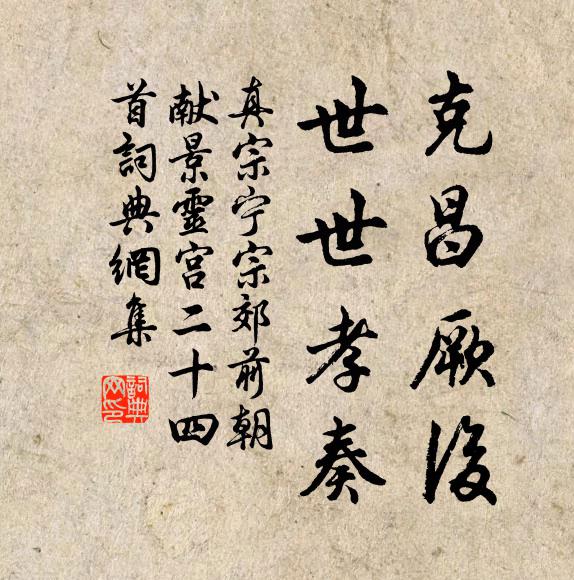 克昌厥后
世世孝奏
真宗宁宗郊前朝
献景靈宫二十四
首詞典網集
詞典
网印